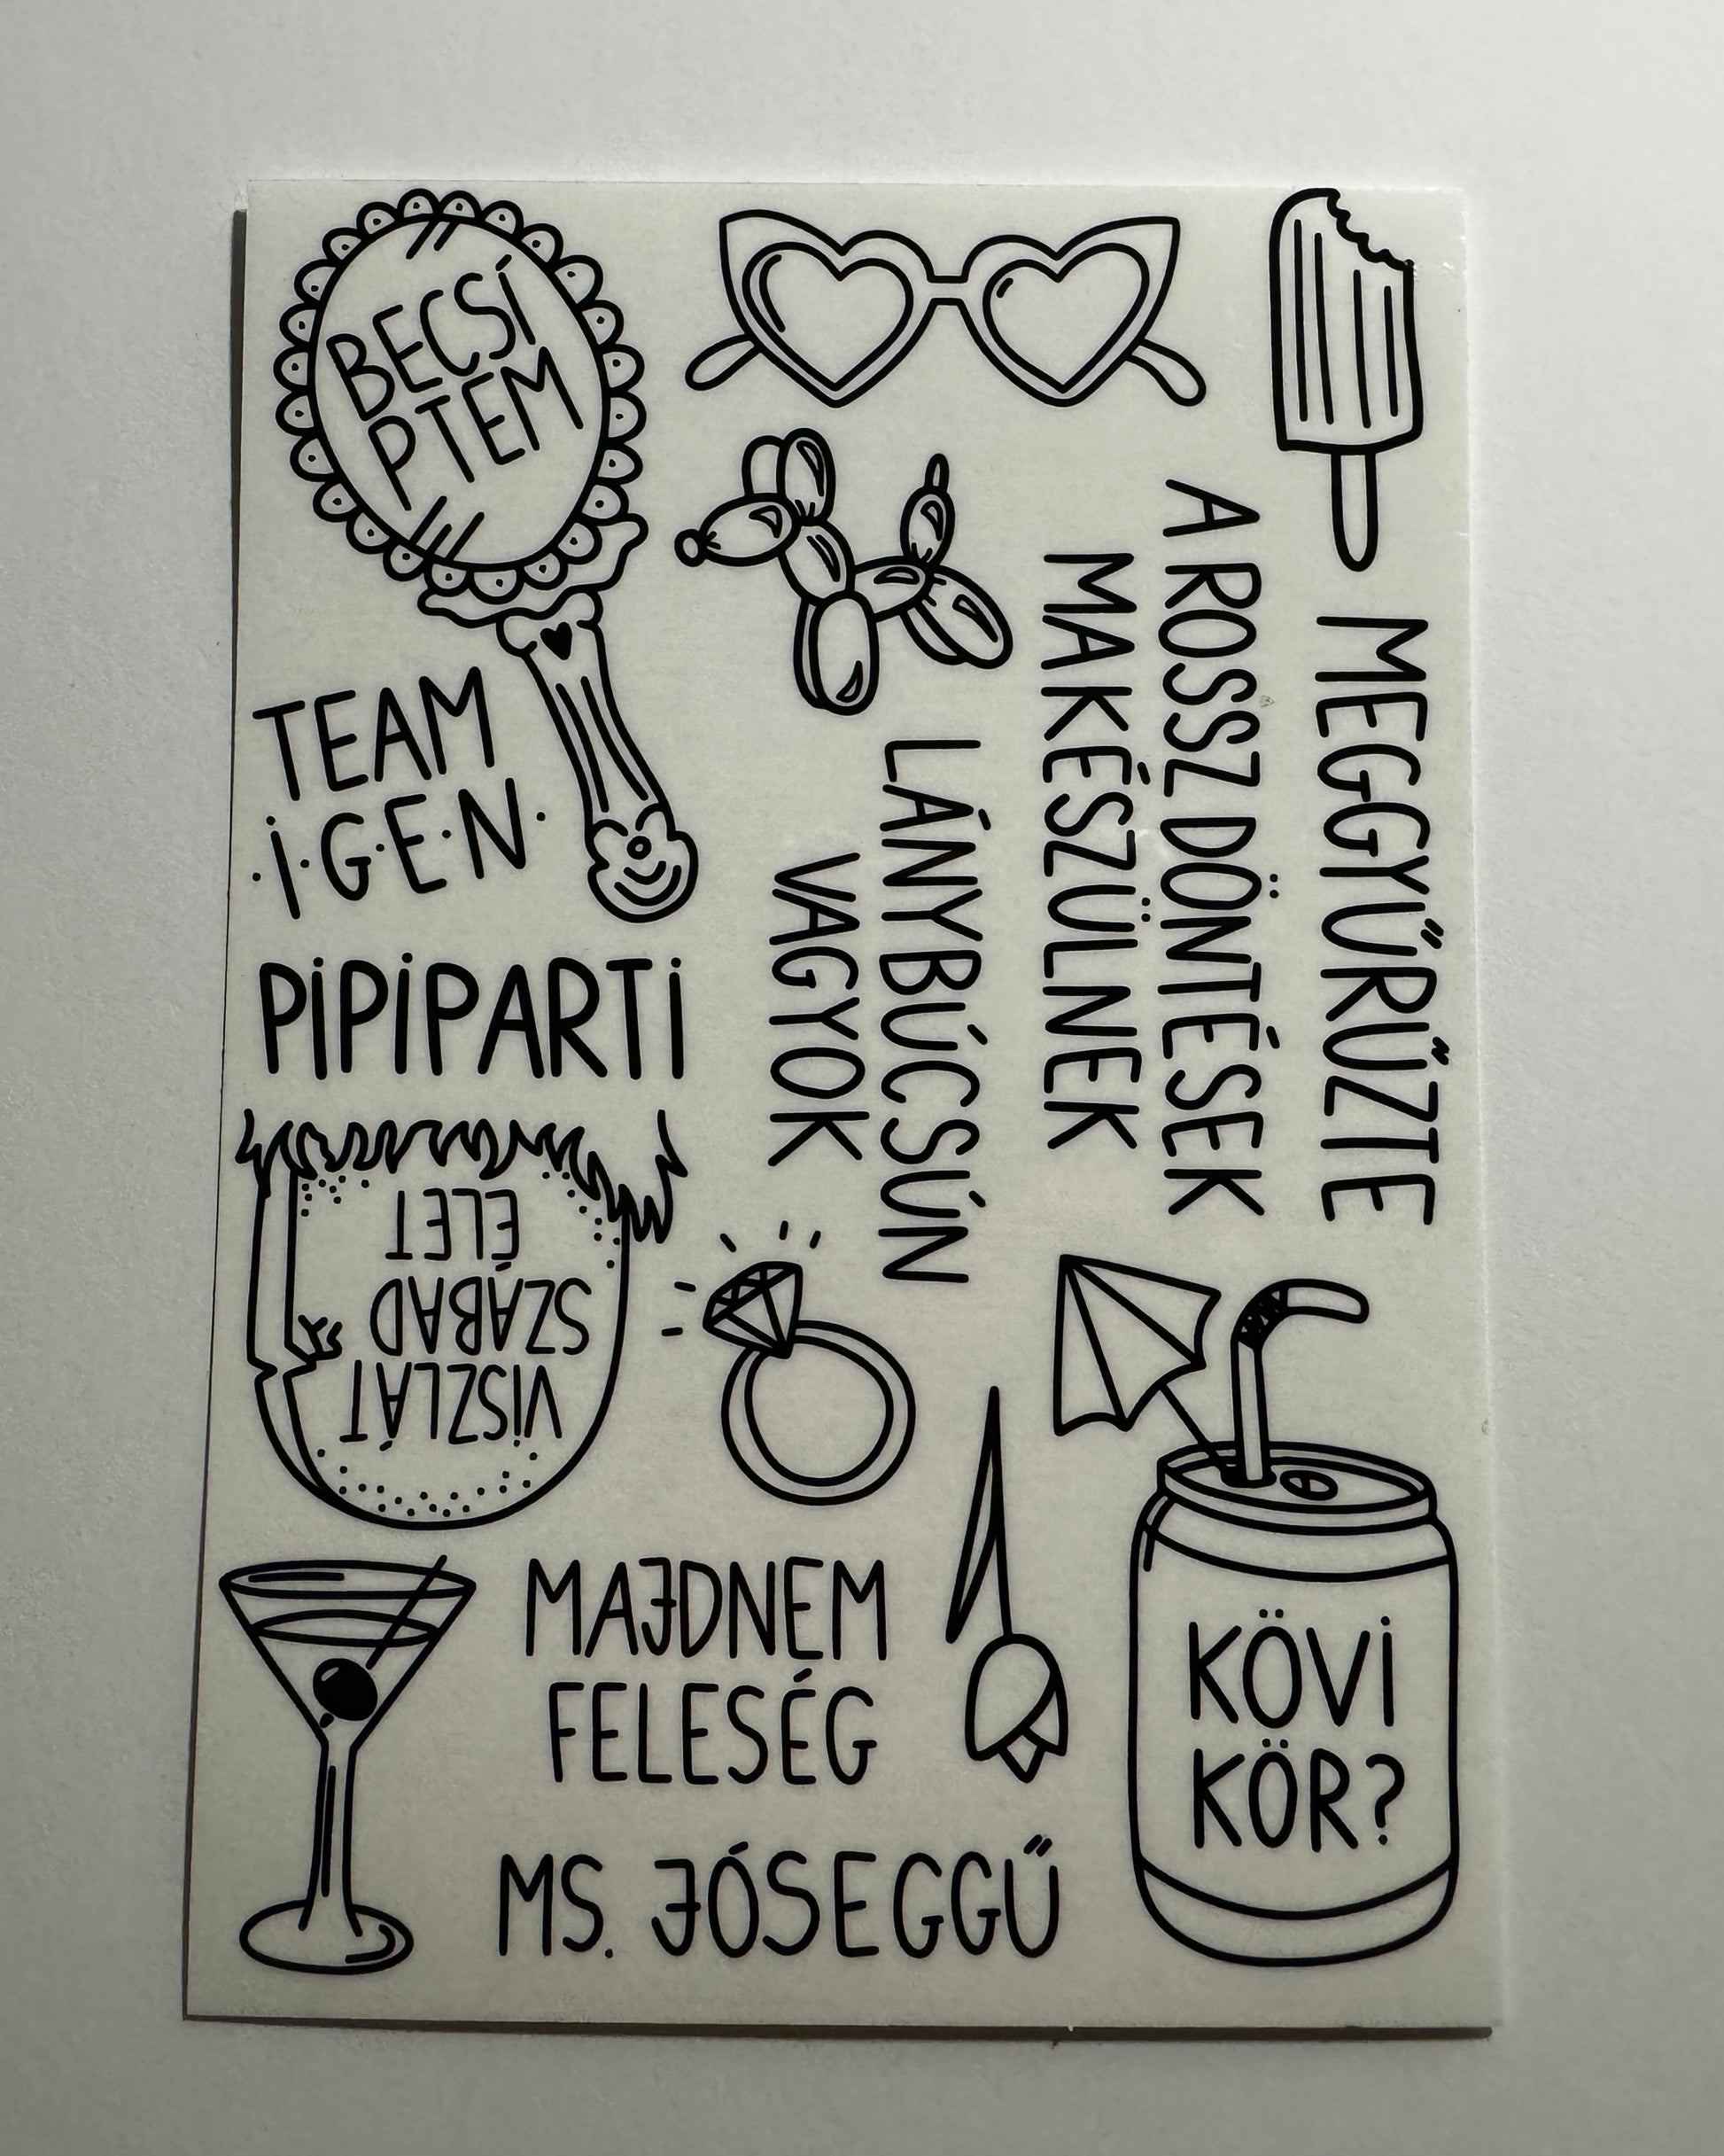 BECSÍ
PTEM
TEAM
I·G·E·N·
PIPIPARTI
VISZLÁT
SZABAD
ÉLET
LÁNYBÚCSÚN
VAGYOK
A ROSSZ DÖNTÉSEK
MAKÉSZÜLNEK
MEGGYŰRŰZTE
MAJDNEM
FELESÉG
MS. JÓSEGGŰ
KÖVI
KÖR?